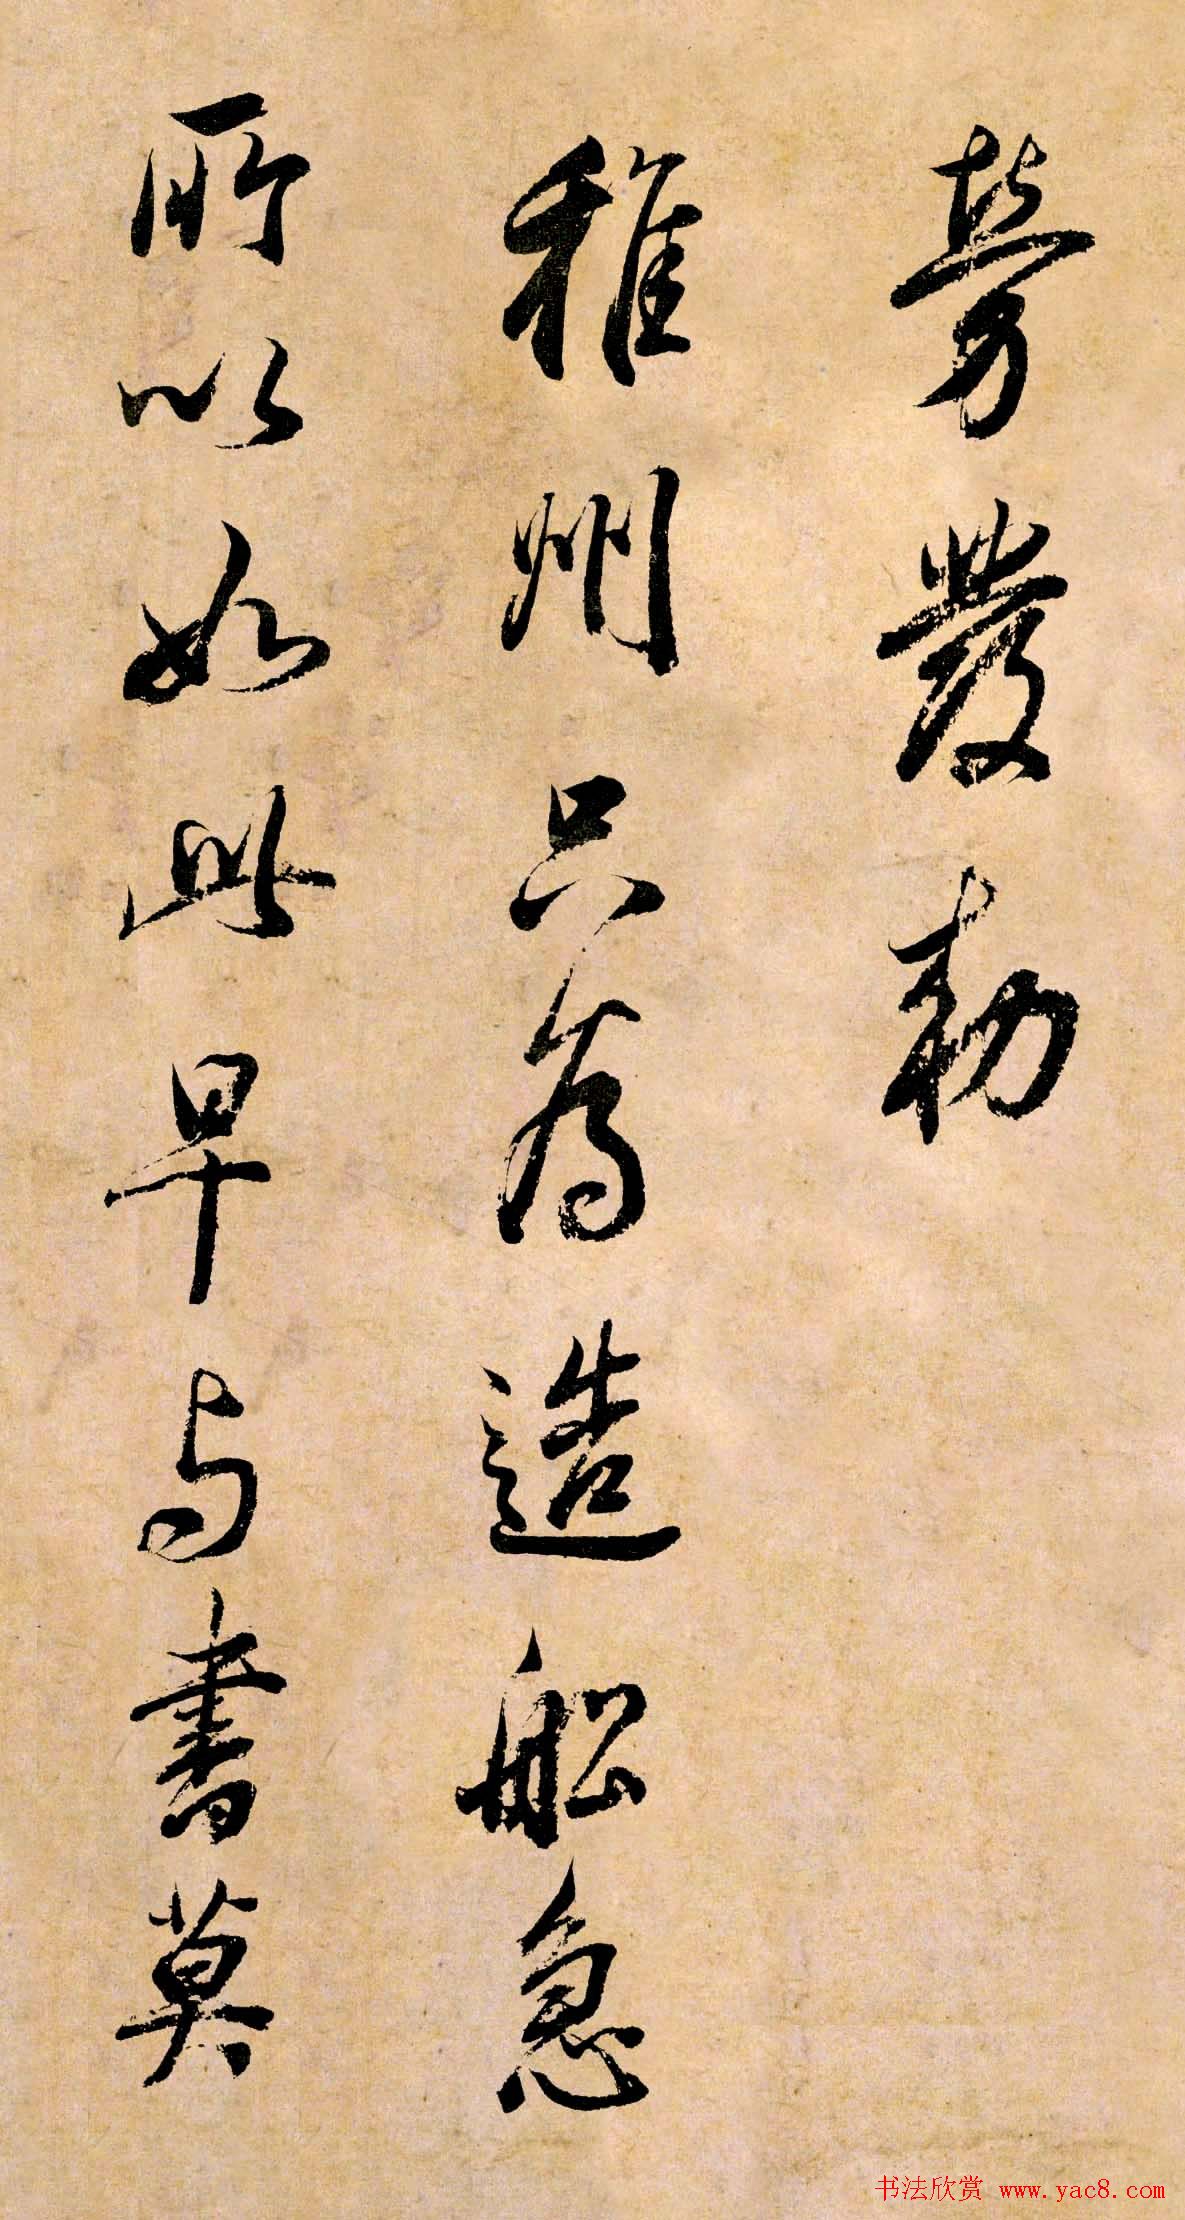 勞發勅
雅州只為造舩急
所以如此早与書莫
书法欣赏 www.yac8.com